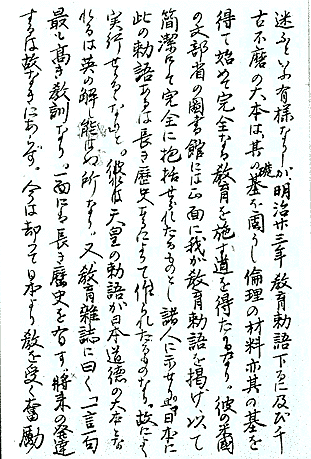 迷ふといふ有様なりしが、明治廿三年教育勅語下るに及び千
古不磨の大本は、其の基礎を固うし倫理の材料亦其の基を
得て始めて完全なる教育を施す道を得たるなり。彼の米国
の文部省の図書館には正面に我が教育勅語を掲げ、以て
簡潔にして完全に抱括せられたるものとし諸人に示せり。曰く日本に
此の勅語あるは長き歴史を
実行せらるゝなりと。彼等は天皇の勅語が日本道徳の大本となり
居るは英の解し能はぬ所なり。又教育雑誌に曰く「一言一句
最も高き教訓なり。一面には長き歴史を有す、将来の発達
するは故なきにあらず。今は却つて日本より教を受く奮励